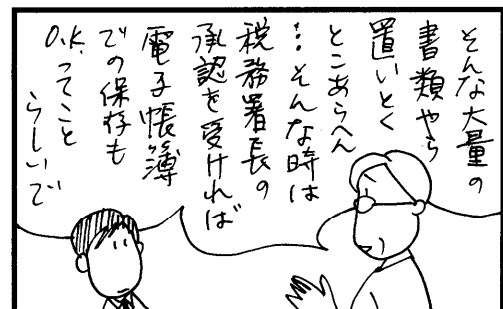 そんな大量の
書類やら
置いとく
とこあらへん
…そんな時は
税務署長の
承認を受ければ
電子帳簿
での保存も
O.K.ってこと
らしいで